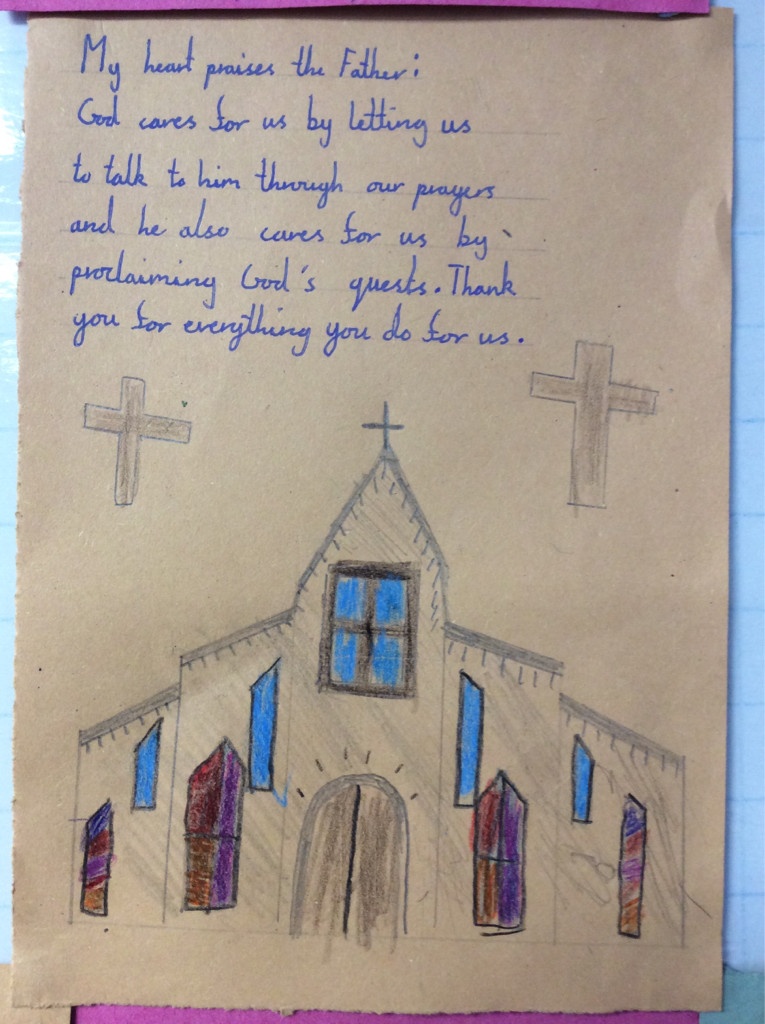 My heart praises the Father:
God cares for us by letting us
to talk to him through our prayers
and he also cares for us by
proclaiming God's quests. Thank
you for everything you do for us.